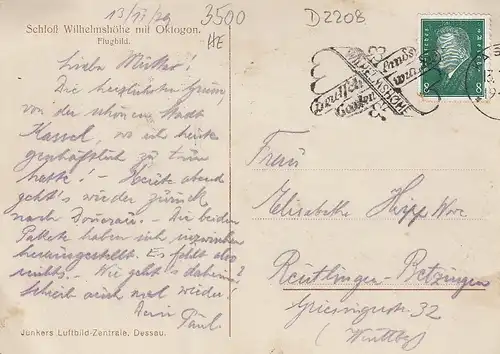 13/VI/29
3500
HE
D2208
Schloß Wilhelmshöhe mit Oktogon.
Flugbild.
Liebe Mutter!
Die herzlichsten Grüsse
von der schönen Stadt
Kassel, wo ich heute
geschäftlich zu tun
hatte! – Heute abend
geht's wieder zurück
nach – Die beiden
Pakete haben sich inzwischen
herausgestellt. Es fehlt also
nichts. – Wie geht's daheim?
Schreib auch mal wieder!
Dein Paul
Junkers Luftbild-Zentrale, Dessau.
WILHELMSHÖHE
8 8
Frau
Elisabethe Hipp Wwe
Reutlingen-Betzingen
32
(Württbg)